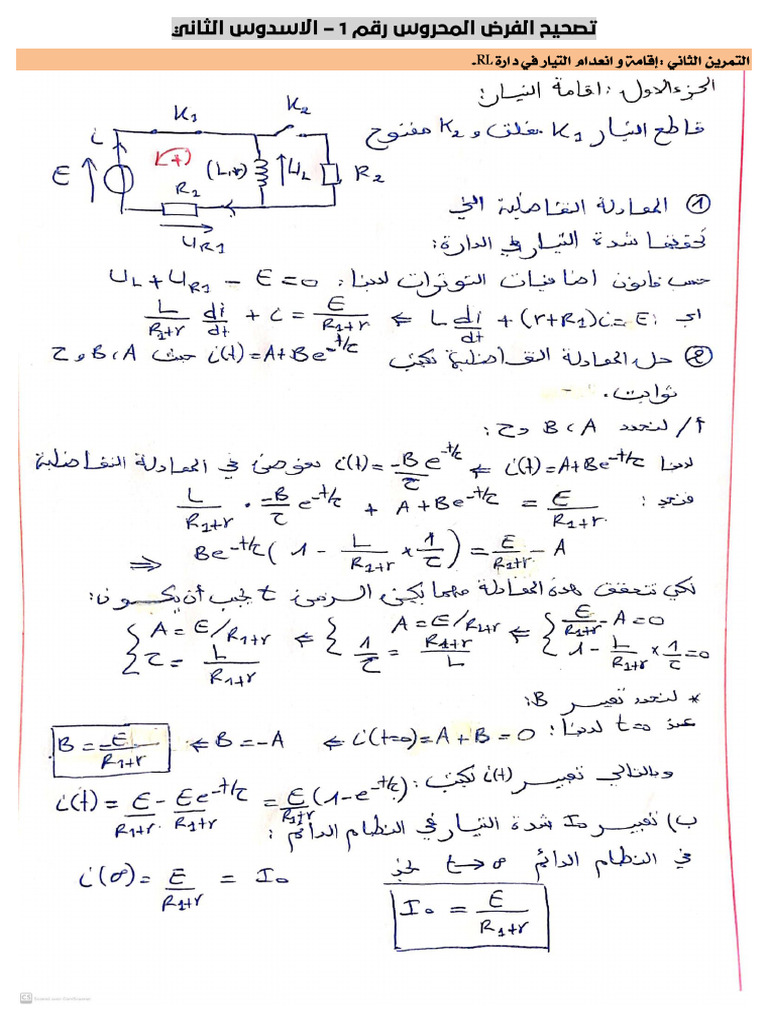 تصحيح الفرض المحروس رقم 1 – الاسدوس الثاني
التمرين الثاني : إقامة و انعدام التيار في دارة RL.
الجزء الاول : اقامة التيار :
قاطع التيار K1 مغلق و K2 مفتوح
K1
K2
i
E
(+)
(L,r)
UL
R2
R1
UR1
① المعادلة التفاضلية التي
تحققها شدة التيار في الدارة:
حسب قانون اضافيات التوترات لدينا: UL + UR1 - E = 0
اي L di/dt + (r+R1)i = E ⇐ L/(R1+r) di/dt + i = E/(R1+r)
② حل المعادلة التفاضلية تكتب i(t) = A + Be^(-t/τ) حيث A ، B و τ
ثوابت .
أ/ لنحدد A ، B و τ :
لدينا i(t) = A + Be^(-t/τ) ⇐ i(t) = -B/τ e^(-t/τ) نعوض في المعادلة التفاضلية
فنجد : L/(R1+r) . -B/τ e^(-t/τ) + A + Be^(-t/τ) = E/(R1+r)
⇒ Be^(-t/τ) (1 - L/(R1+r) × 1/τ) = E/(R1+r) - A
لكي تتحقق هذه المعادلة مهما يكن الزمن t يجب أن يكون :
{ E/(R1+r) - A = 0 ⇐ { A = E/R1+r ⇐ { A = E/R1+r
{ 1 - L/(R1+r) × 1/τ = 0 { 1/τ = (R1+r)/L { τ = L/(R1+r)
* لنحدد تعبير B :
عند t=0 لدينا : i(t=0) = A + B = 0 ⇐ B = -A ⇐ B = -E/(R1+r)
وبالتالي تعبير i(t) تكتب :
i(t) = E/(R1+r) - Ee^(-t/τ)/(R1+r) = E/(R1+r) (1 - e^(-t/τ))
ب) تعبير I0 شدة التيار في النظام الدائم :
في النظام الدائم t → ∞ نجد
i(∞) = E/(R1+r) = I0
I0 = E/(R1+r)
CS